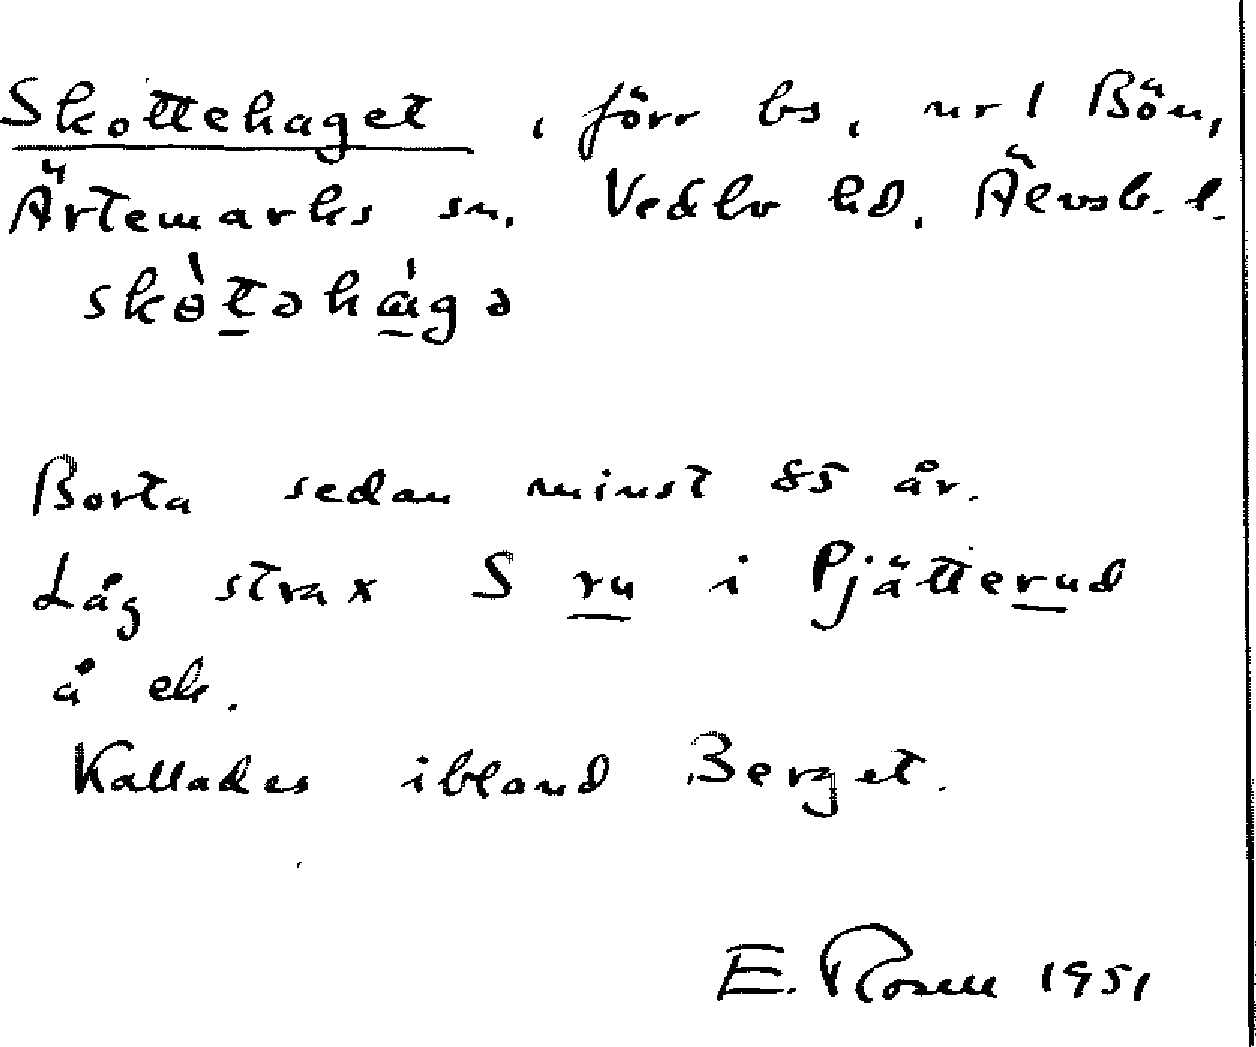 Skottehaget, förr bs, nr 1 Bön,
Ärtemarks sn. Vedbo hd. Älvsb. l.
skò̀təhágə
Borta sedan minst 85 år.
Låg strax S ru i Pjätterud
å ek.
Kallades ibland Berget.
E. Rosell 1951